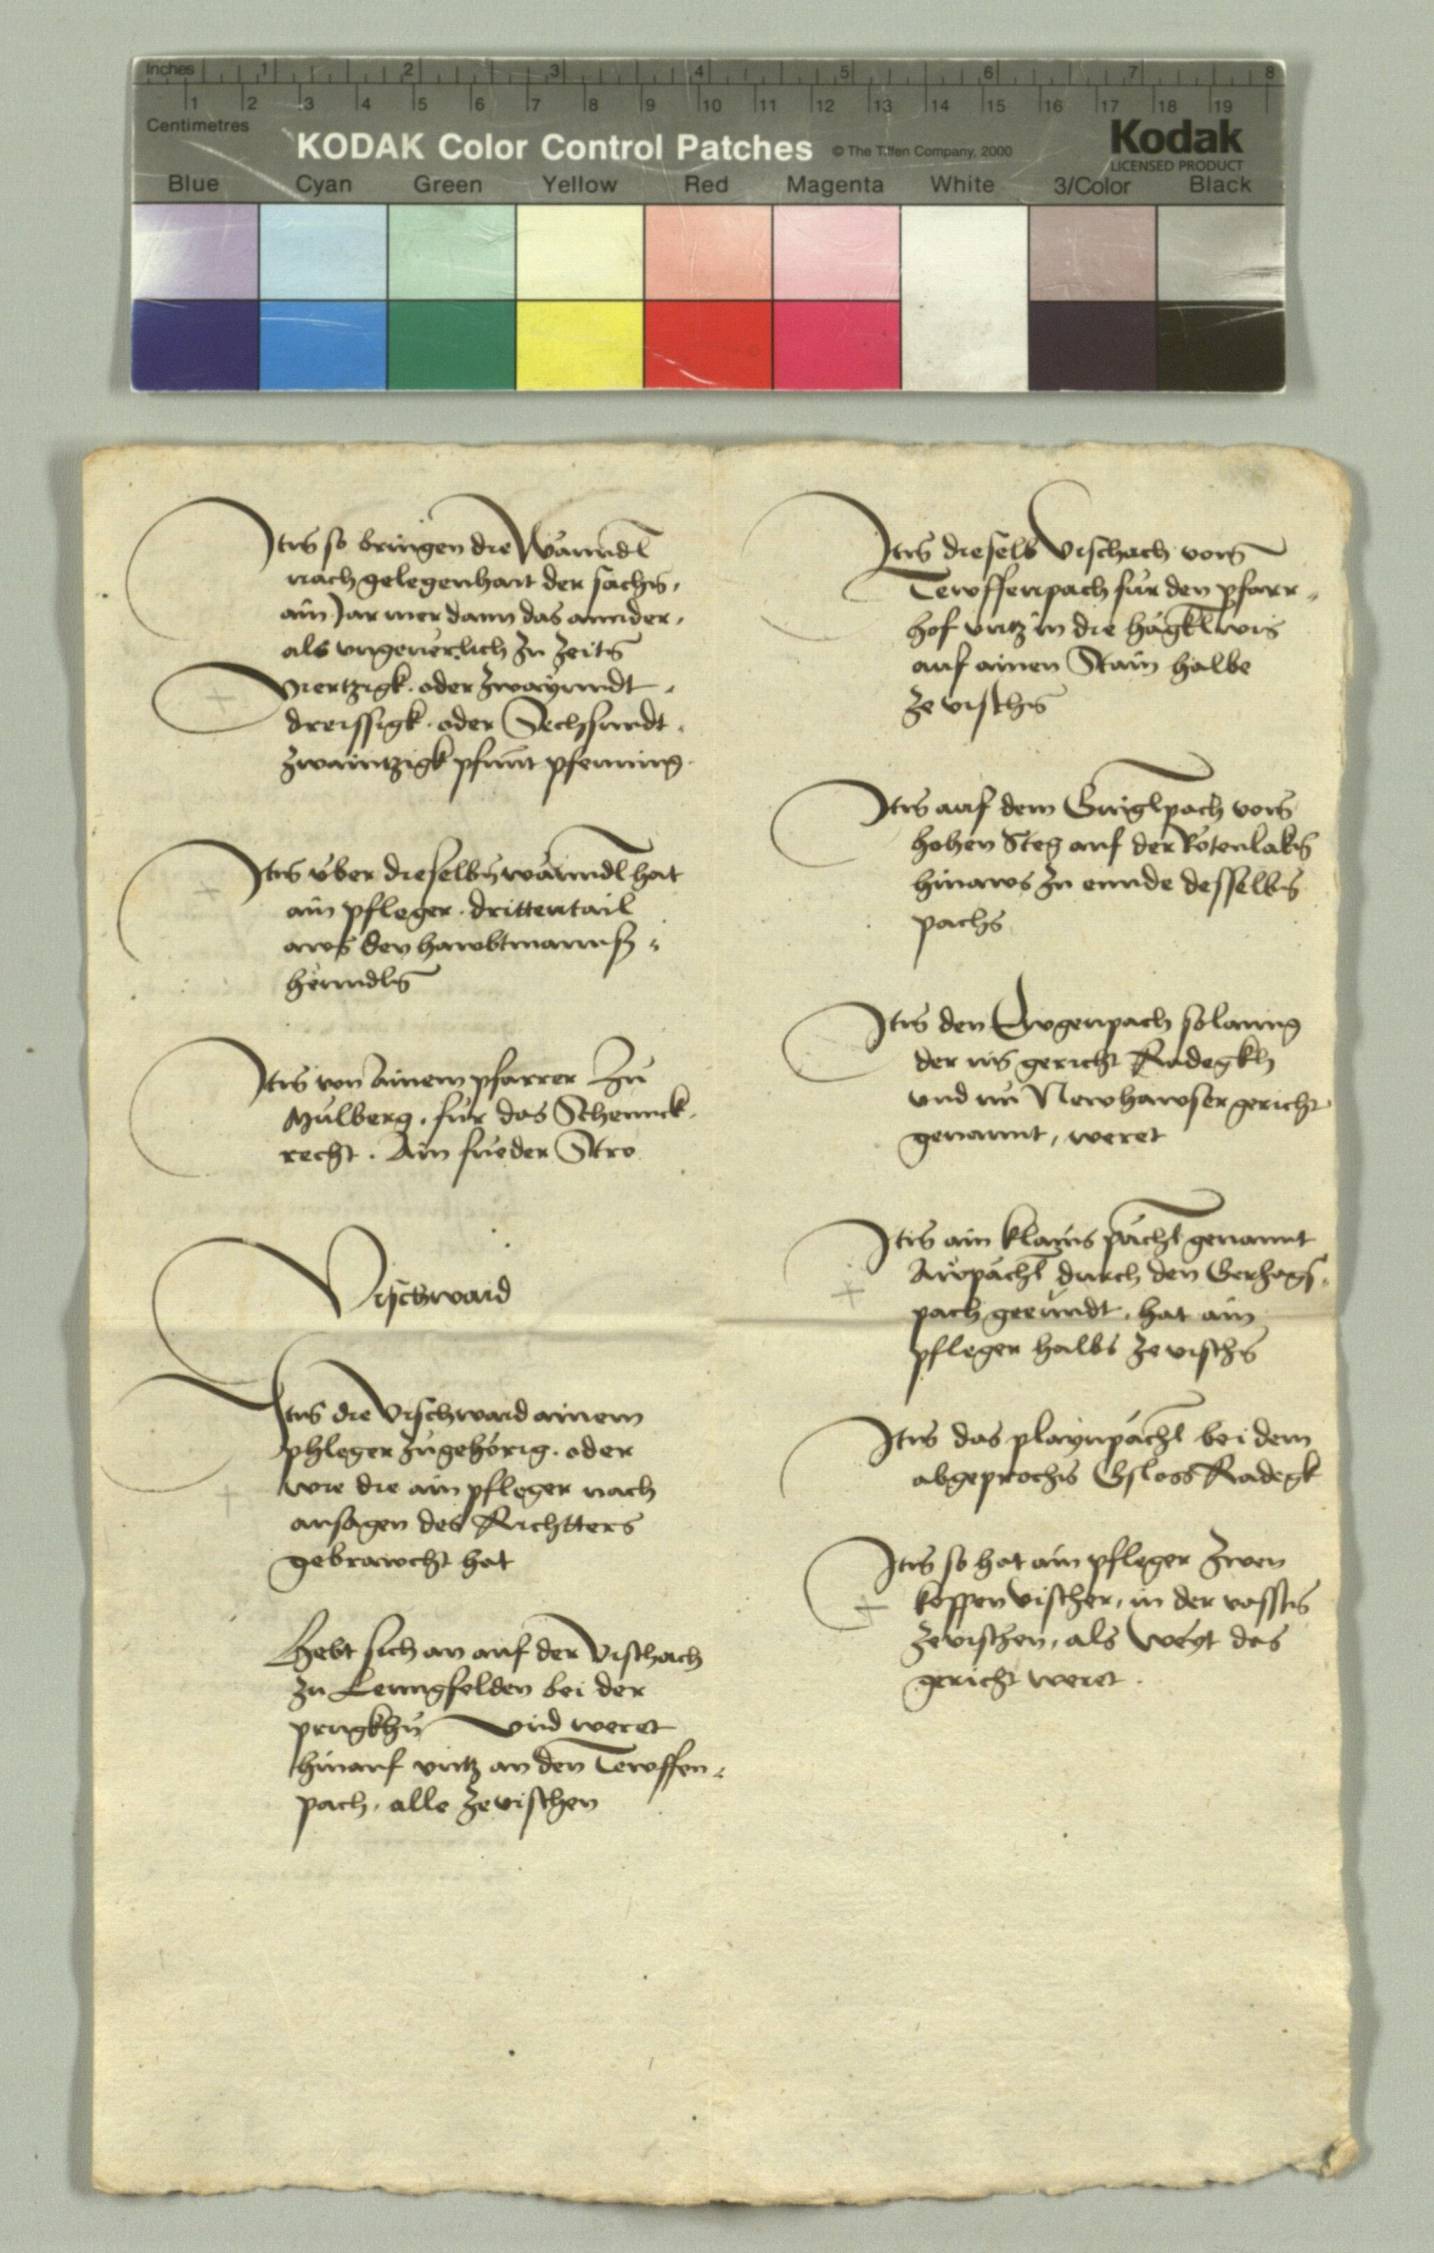 Inches 1 2 3 4 5 6 7 8
1 2 3 4 5 6 7 8 9 10 11 12 13 14 15 16 17 18 19
Centimetres
KODAK Color Control Patches © The Tiffen Company, 2000 Kodak
LICENSED PRODUCT
Blue Cyan Green Yellow Red Magenta White 3/Color Black
Itm so bringen die Wanndl
nach gelegenhait der sachn,
ain Jar mer dann das annder,
als ungeuerlich zu zeitn
Viertzigk. oder zwayundt
dreissigk. oder Sechsundt
zwaintzigk pfunt pfenning.
Itm über dieselbn wänndl hat
ain pfleger. drittentail
aws den hawbtmannsh
henndln
Itm von ainem pfarrer Zu
Mülberg. für das Schennck
recht. Ain fueder Stro
Vischwaid
Itm die Vischwaid ainem
phleger zugehörig. oder
wie die ain pfleger nach
ansagen des Richtters
gebrawcht hat
Hebt sich an auf der Vischach
zu Lenngfelden bei der
prugkhn und weret
hinauf untz an den Tewffen
pach, alle ze vischen
Itm dieselb Vischach vom
Tewffenpach für den pfarr
hof untz in die
auf ainen Stain halbe
ze vischn
Itm auf dem pach vom
hohen Steg auf der Rotenlakn
hinaws zu ennde desselbn
pachs
Itm den Eugenpach solanng
der im gericht Radegkh
und nu Newhawser gericht
genannt, weret
Itm ain klains pächl genannt
Awpächl durch den
pach geeundt, hat ain
pfleger halbs ze vischn
Itm das playnpächl bei dem
abgeprochn Gsloss Radegk
Itm so hat ain pfleger zwen
koppen vischer, in der vasstn
ze vischen, als weyt das
gericht weret.